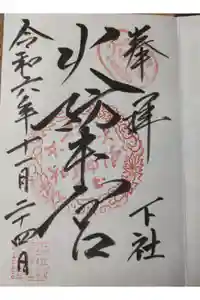 奉拝 下社
火防本宮
令和六年十一月二十四日